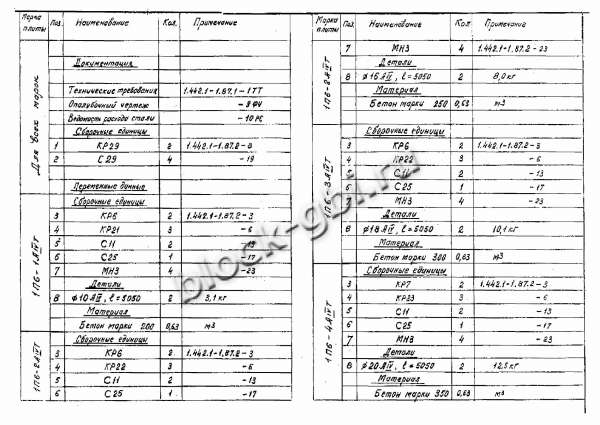 Марка плиты Поз. Наименование Кол. Примечание
Для всех марок
Документация
Технические требования 1.442.1-1.87.1-1ТТ
Опалубочный чертеж -9ФЧ
Ведомость расхода стали -10РС
Сборочные единицы
1 КР29 2 1.442.1-1.87.2-8
2 С29 4 -19
Переменные данные
1П6-1АIIIТ
Сборочные единицы
3 КР6 2 1.442.1-1.87.2-3
4 КР21 3 -6
5 С11 2 -13
6 С25 1 -17
7 МН3 4 -23
Детали
8 ф10АIII, ℓ=5050 2 3,1 кг
Материал
Бетон марки 200 0,63 м3
1П6-2АIIIТ
Сборочные единицы
3 КР6 2 1.442.1-1.87.2-3
4 КР22 3 -6
5 С11 2 -13
6 С25 1 -17
Марка плиты Поз. Наименование Кол Примечание
1П6-2АIIIТ
7 МН3 4 1.442.1-1.87.2-23
Детали
8 ф16АIII, ℓ=5050 2 8,0 кг
Материал
Бетон марки 250 0,63 м3
1П6-3АIIIТ
Сборочные единицы
3 КР6 2 1.442.1-1.87.2-3
4 КР22 3 -6
5 С11 2 -13
6 С25 1 -17
7 МН3 4 -23
Детали
8 ф18АIII, ℓ=5050 2 10,1 кг
Материал
Бетон марки 300 0,63 м3
1П6-4АIIIТ
Сборочные единицы
3 КР7 2 1.442.1-1.87.2-3
4 КР23 3 -6
5 С11 2 -13
6 С25 1 -17
7 МН3 4 -23
Детали
8 ф20АIII, ℓ=5050 2 12,5 кг
Материал
Бетон марки 350 0,63 м3
block-gbi.ru